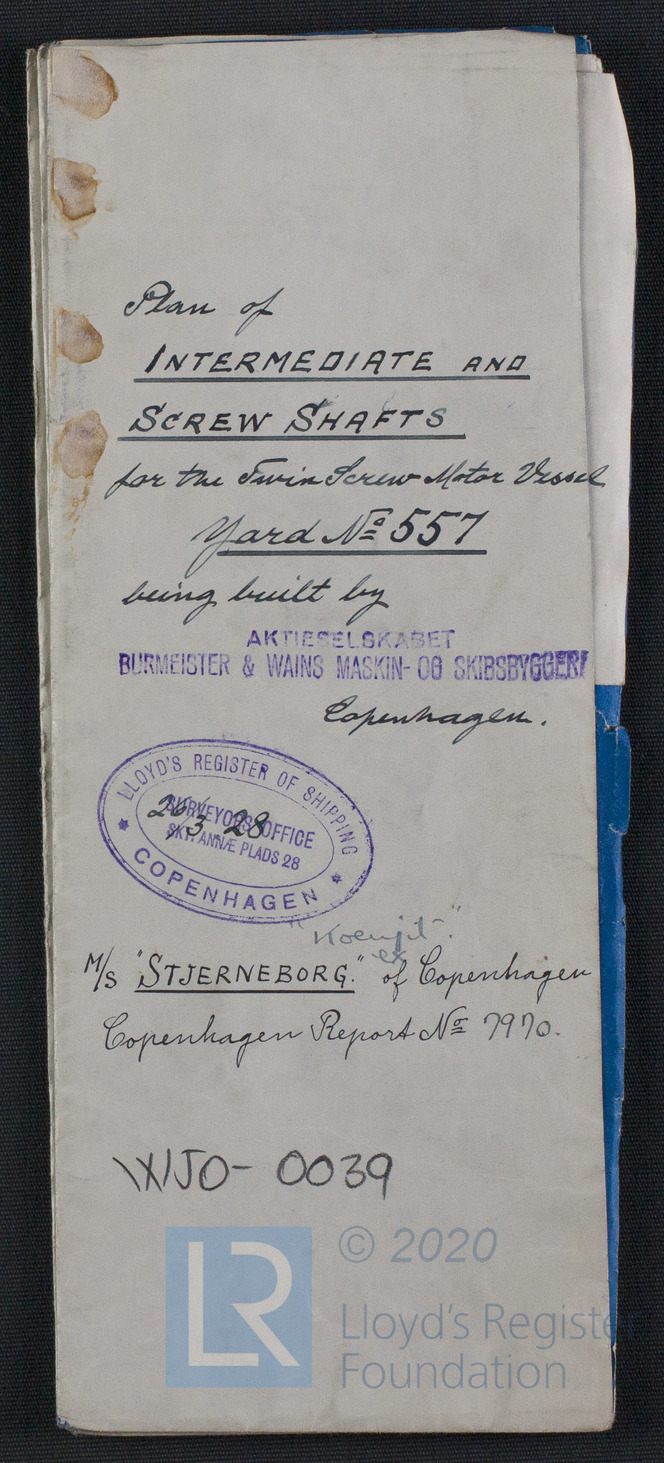 Plan of
INTERMEDIATE AND
SCREW SHAFTS
for the Twin Screw Motor Vessel
Yard Nº 557
being built by
AKTIESELSKABET
BURMEISTER & WAINS MASKIN- OG SKIBSBYGGERI
Copenhagen.
LLOYD'S REGISTER OF SHIPPING
SURVEYORS OFFICE
26/3.28
SKT. ANNÆ PLADS 28
COPENHAGEN
ex
M/S "STJERNEBORG." of Copenhagen
Copenhagen Report Nº 7970.
W150- 0039
LR
© 2020
Lloyd's Register
Foundation